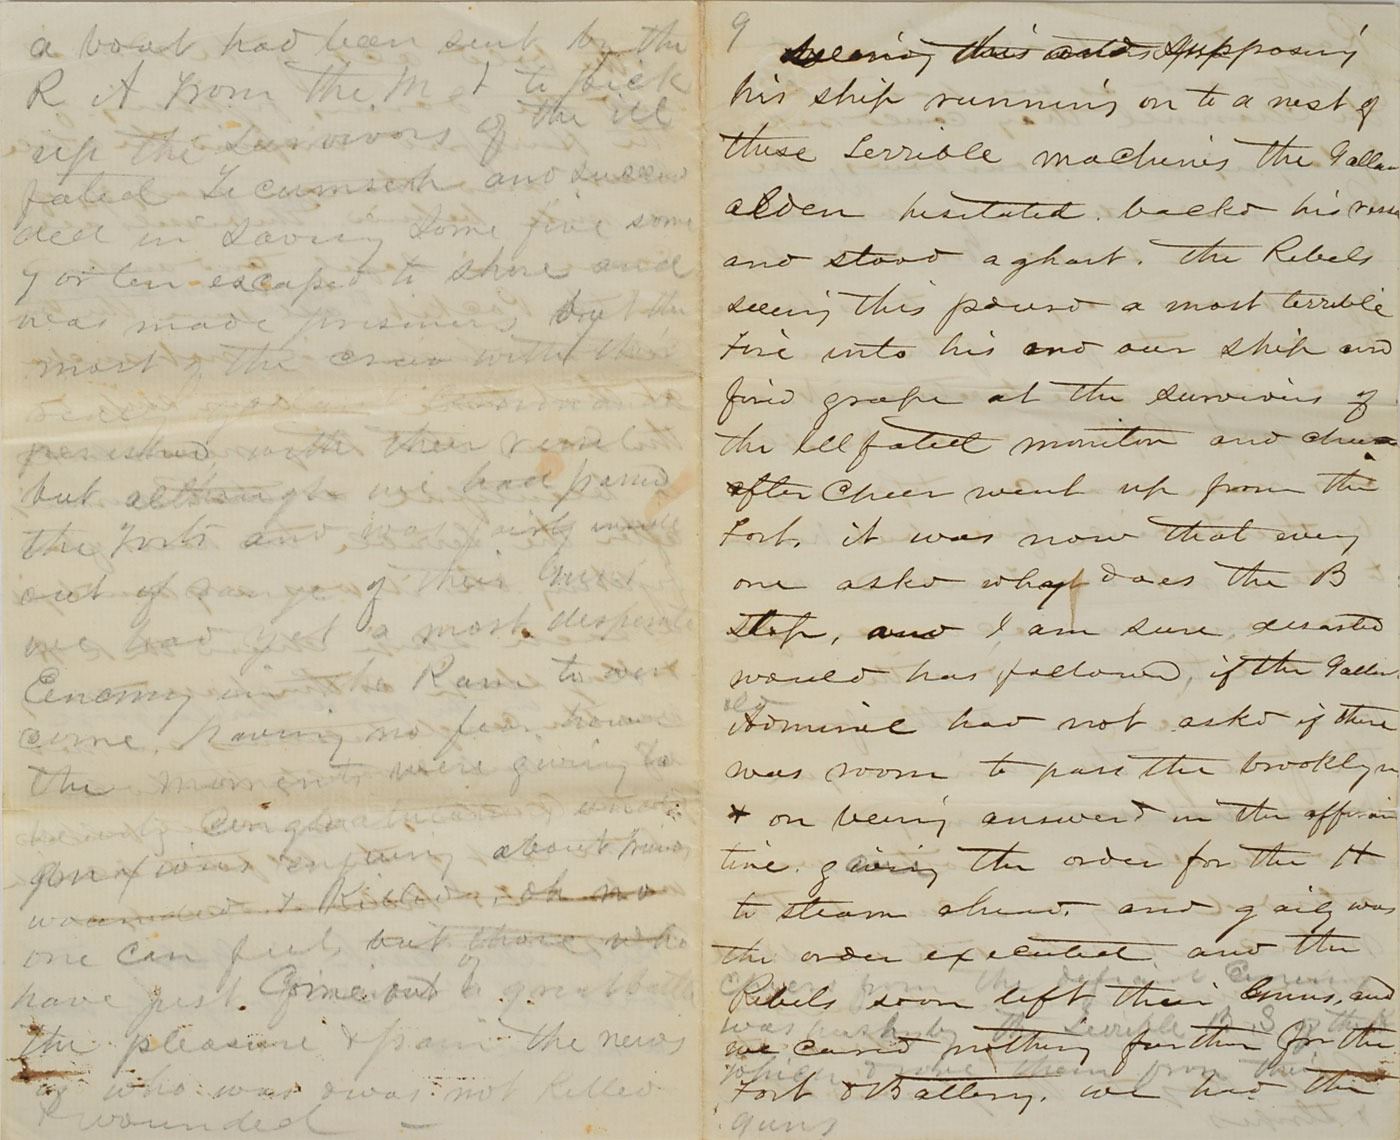 a boat had been sent by the
R A from the Met to pick
up the Survivors of the ill
fated Tecumseh and succee
ded in Saving Some five some
9 or ten escaped to shore and
was made prisoners but the
most of the crew with their
perished with their vessel
but although we had passed
the forts and was fairly inside
out of range of their Guns
we had yet a most desperate
Eenemy in the Ram to over
come. having no fear however
the moments were giving to
wounded & Killed, oh no
one can feel but those who
have just Come out of a great battle
the pleasure & pain the news
of who was & was not Killed
& wounded —
9
Seeing this and Supposing
his ship running on to a nest of
these terrible machines the Gallan
alden hesitated. backd his vess
and stood aghast. The Rebels
seeing this pourd a most terrible
Fire into his and our ship and
fired grape at the survivors of
the Ill fated monitor and cheer
after Cheer went up from the
Fort. it was now that every
one askd what does the B
stop, and I am sure disasted
would has followed, if the Gallant
old
Admiral had not askd if there
was room to pass the brooklyn
& on being answerd in the affirma
tive. giving the order for the H
to steam ahead. and gaily was
the order executed. and the
Cheer from the defiant Eenemy
Rebels soon left their Guns, and
was hushd by the terrible B. S of the H
we cared nothing further for the
which drove them from their
Fort & Battery. we had the
guns